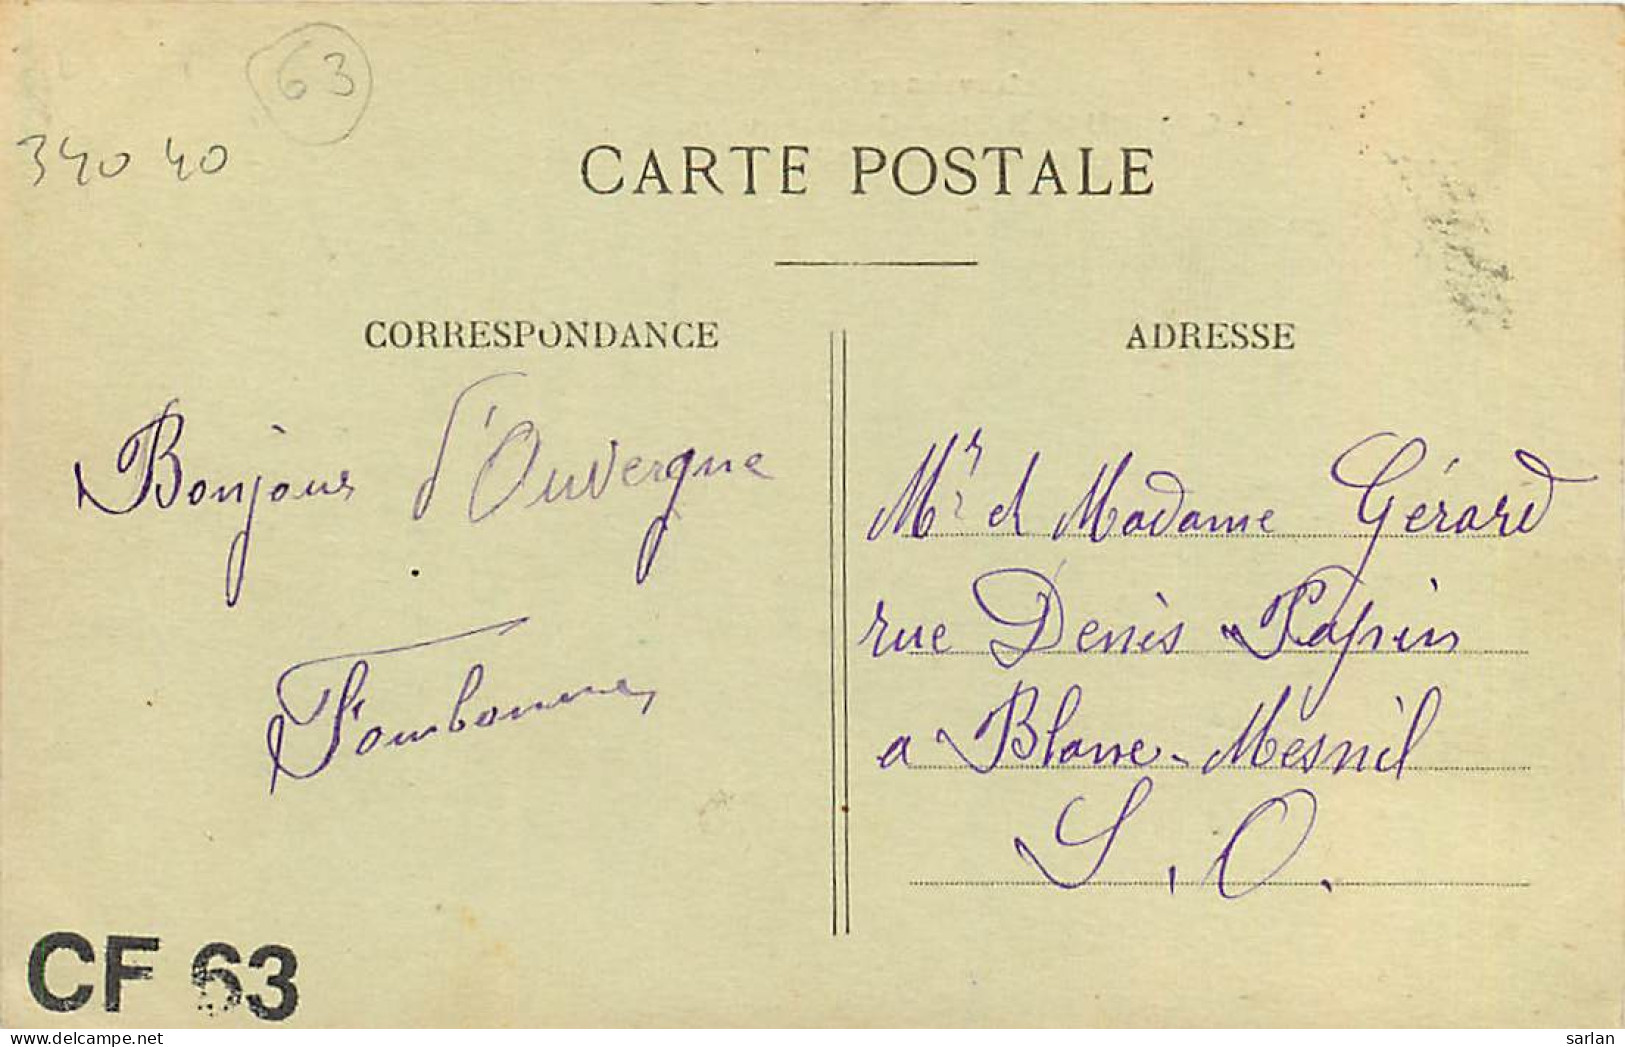 63
34040
CARTE POSTALE
CORRESPONDANCE
ADRESSE
Bonjour d'Auvergne
Mr et Madame Gérard
rue Denis Papin
a Blanc-Mesnil
S.O.
CF 63
sarlan